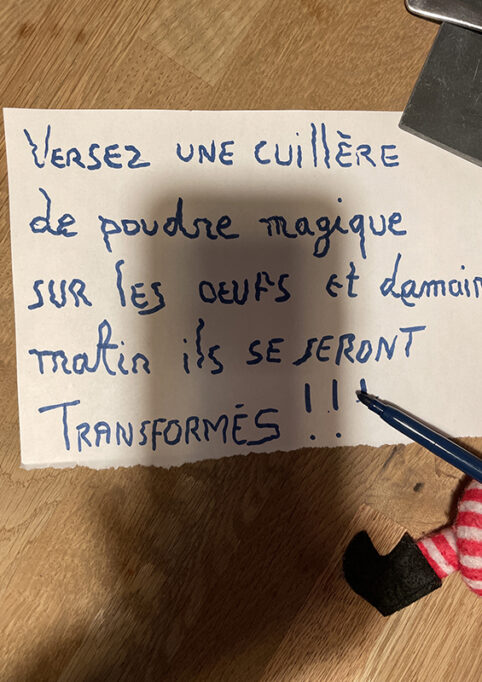 VERSEZ UNE CUillÈRE
de poudre magique
SUR lES OEUFS et damain
matin ils SE SERONT
TRANSFORMÉS !!!